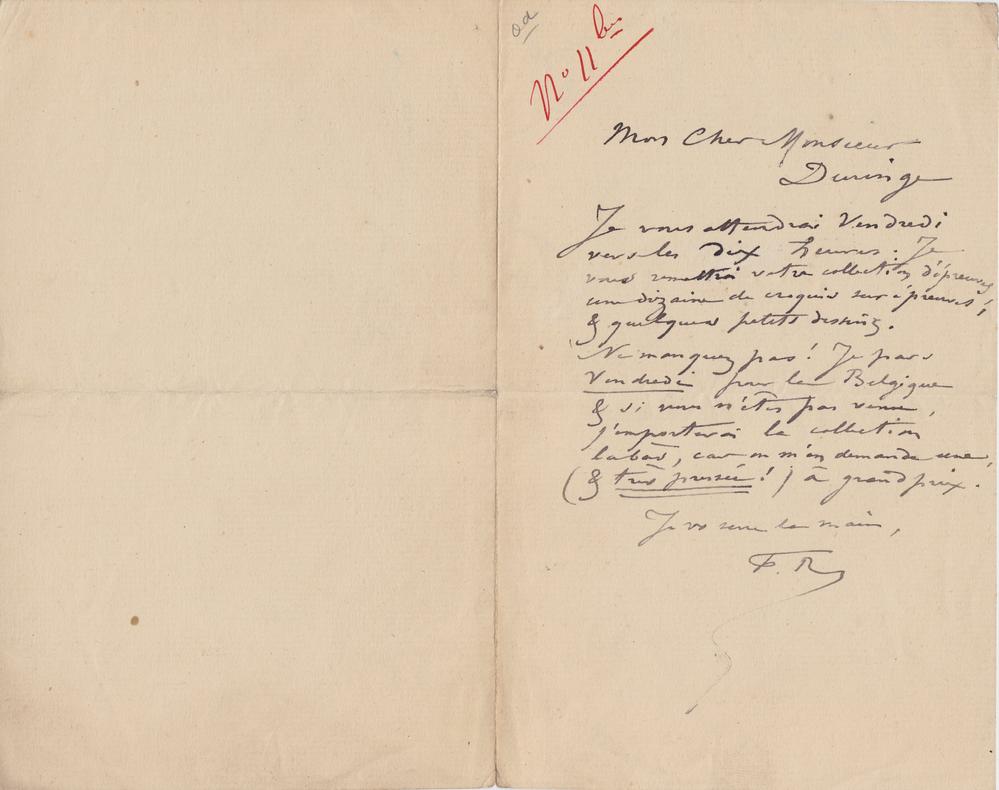 od
No 11 bis
Mon Cher Monsieur
Duringe
Je vous attendrai Vendredi
vers les dix heures. Je
vous remettrai votre collection d'épreuves
une dizaine de croquis sur épreuves,
& quelques petits dessins.
Ne manquez pas! Je pars
Vendredi pour la Belgique
& si vous n'êtes pas venu,
j'emporterai la collection
labas, car on m'en demande une,
(& très pressée!) à grand prix.
Je vs serre la main,
F. R